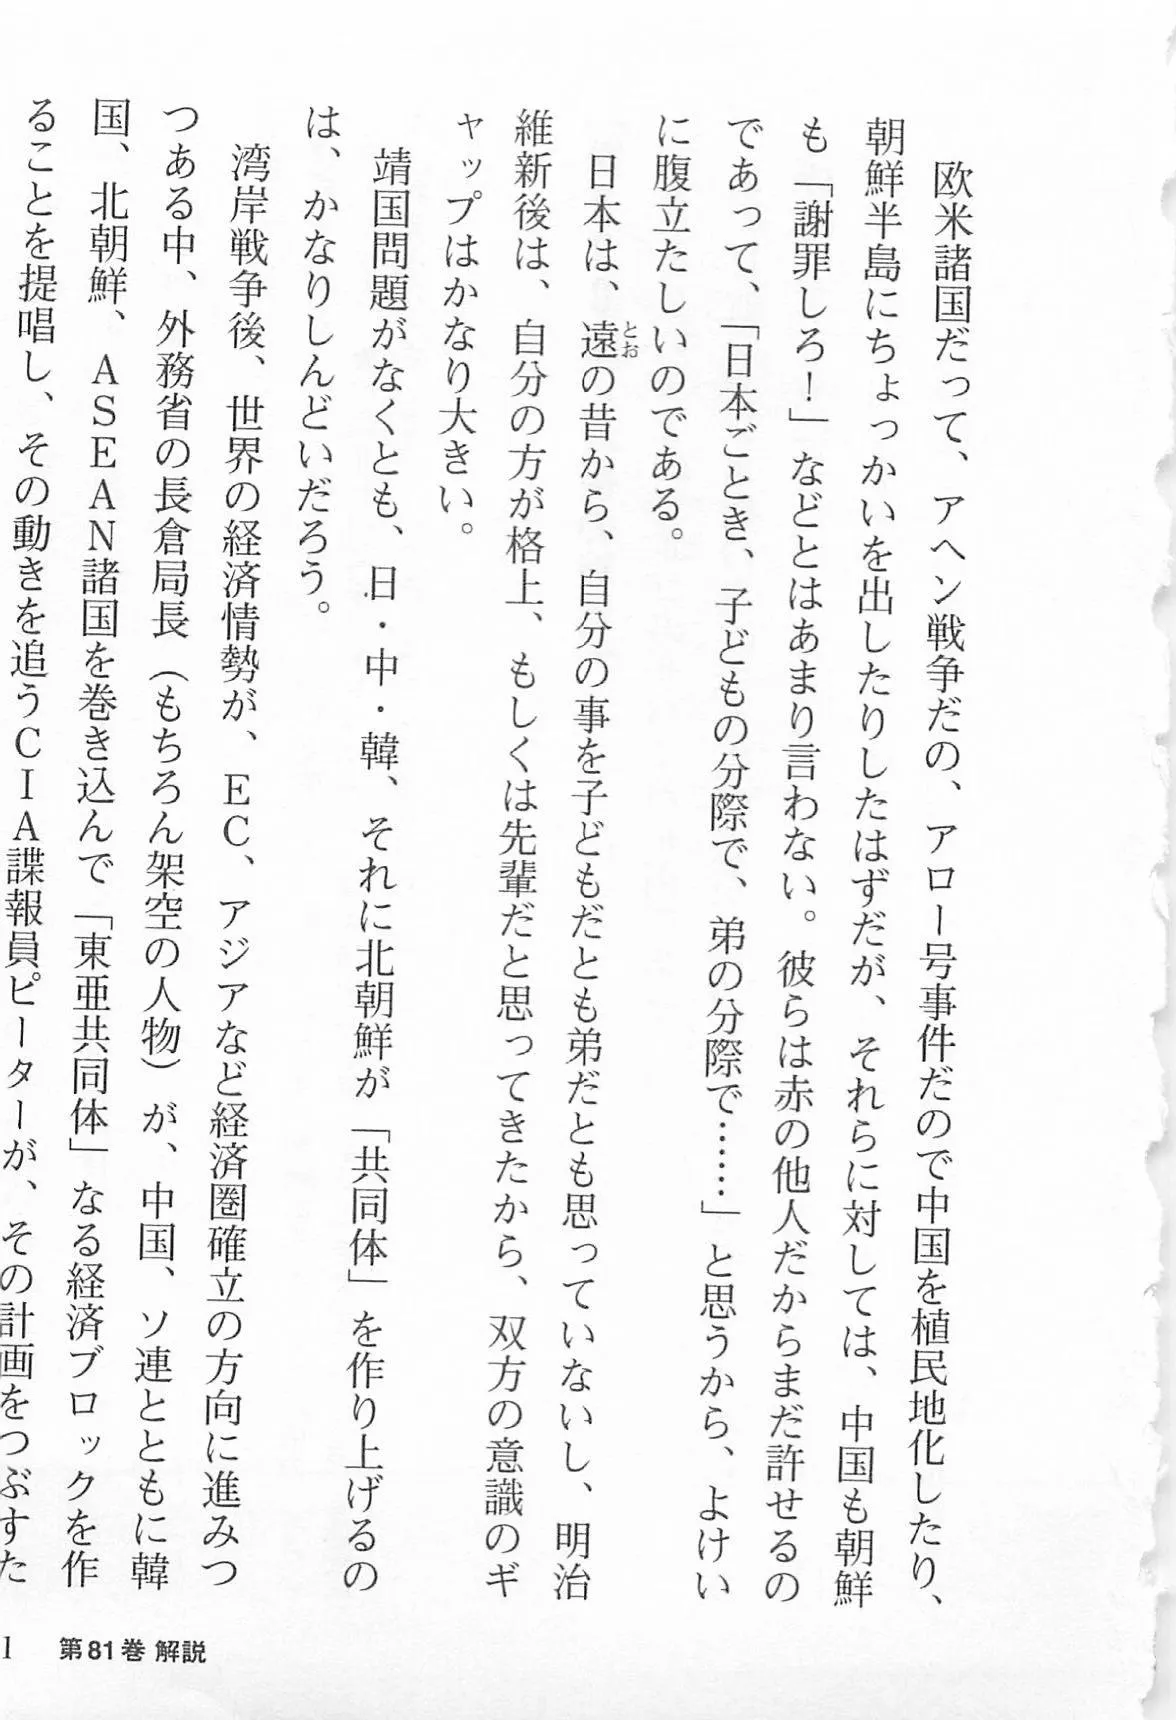 欧米諸国だって、アヘン戦争だの、アロー号事件だので中国を植民地化したり、
朝鮮半島にちょっかいを出したりしたはずだが、それらに対しては、中国も朝鮮
も「謝罪しろ！」などとはあまり言わない。彼らは赤の他人だからまだ許せるの
であって、「日本ごとき、子どもの分際で、弟の分際で……」と思うから、よけい
に腹立たしいのである。
日本は、遠の昔から、自分の事を子どもだとも弟だとも思っていないし、明治
維新後は、自分の方が格上、もしくは先輩だと思ってきたから、双方の意識のギ
ャップはかなり大きい。
靖国問題がなくとも、日・中・韓、それに北朝鮮が「共同体」を作り上げるの
は、かなりしんどいだろう。
湾岸戦争後、世界の経済情勢が、ＥＣ、アジアなど経済圏確立の方向に進みつ
つある中、外務省の長倉局長（もちろん架空の人物）が、中国、ソ連とともに韓
国、北朝鮮、ＡＳＥＡＮ諸国を巻き込んで「東亜共同体」なる経済ブロックを作
ることを提唱し、その動きを追うＣＩＡ諜報員ピーターが、その計画をつぶすた
1 第81巻 解説